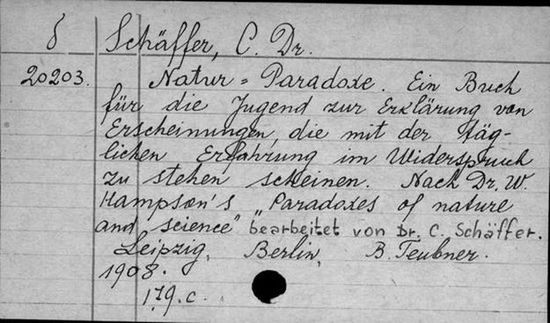 δ Schäffer, C. Dr.
20203. Natur = Paradoxe. Ein Buch
für die Jugend zur Erklärung von
Erscheinungen, die mit der täg-
lichen Erfahrung im Widerspruch
zu stehen scheinen. Nach Dr. W.
Hampson's „Paradoxes of nature
and science" bearbeitet von Dr. C. Schäffer.
Leipzig, Berlin, B. Teubner.
1908.
179. c.